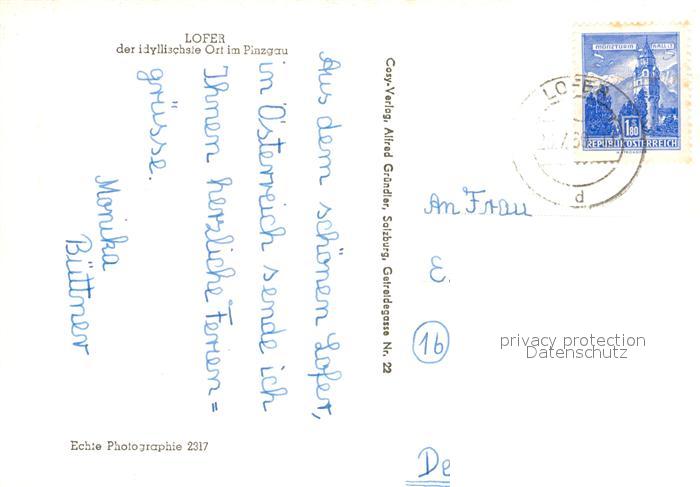 LOFER
der idyllischste Ort im Pinzgau
Aus dem schönen Lofer,
in Österreich sende ich
Ihnen herzliche Ferien=
grüsse.
Monika
Büttner
Echte Photographie 2317
Cosy-Verlag, Alfred Gründler, Salzburg, Getreidegasse Nr. 22
MÜNZTURM HALL i. T.
1.80
REPUBLIK ÖSTERREICH
LOFER
d
An Frau
E.
16
privacy protection
Datenschutz
De